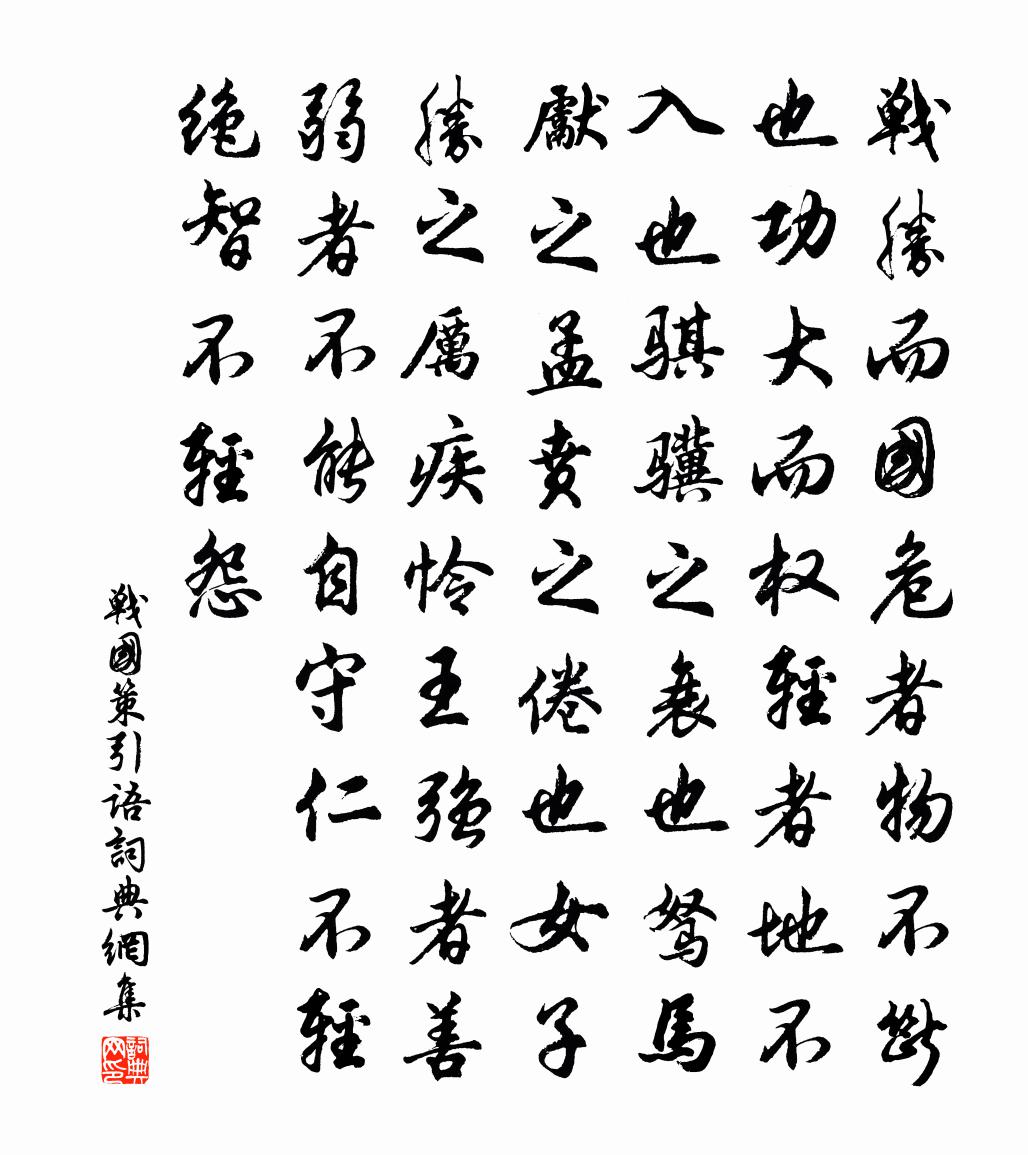 戦勝而國危者物不斷
也功大而权輕者地不
入也骐骥之衰也驽馬
獻之孟賁之倦也女子
勝之厲疾怜王强者善
弱者不能自守仁不輕
绝智不輕怨
戦國策引语詞典網集
詞典
网印